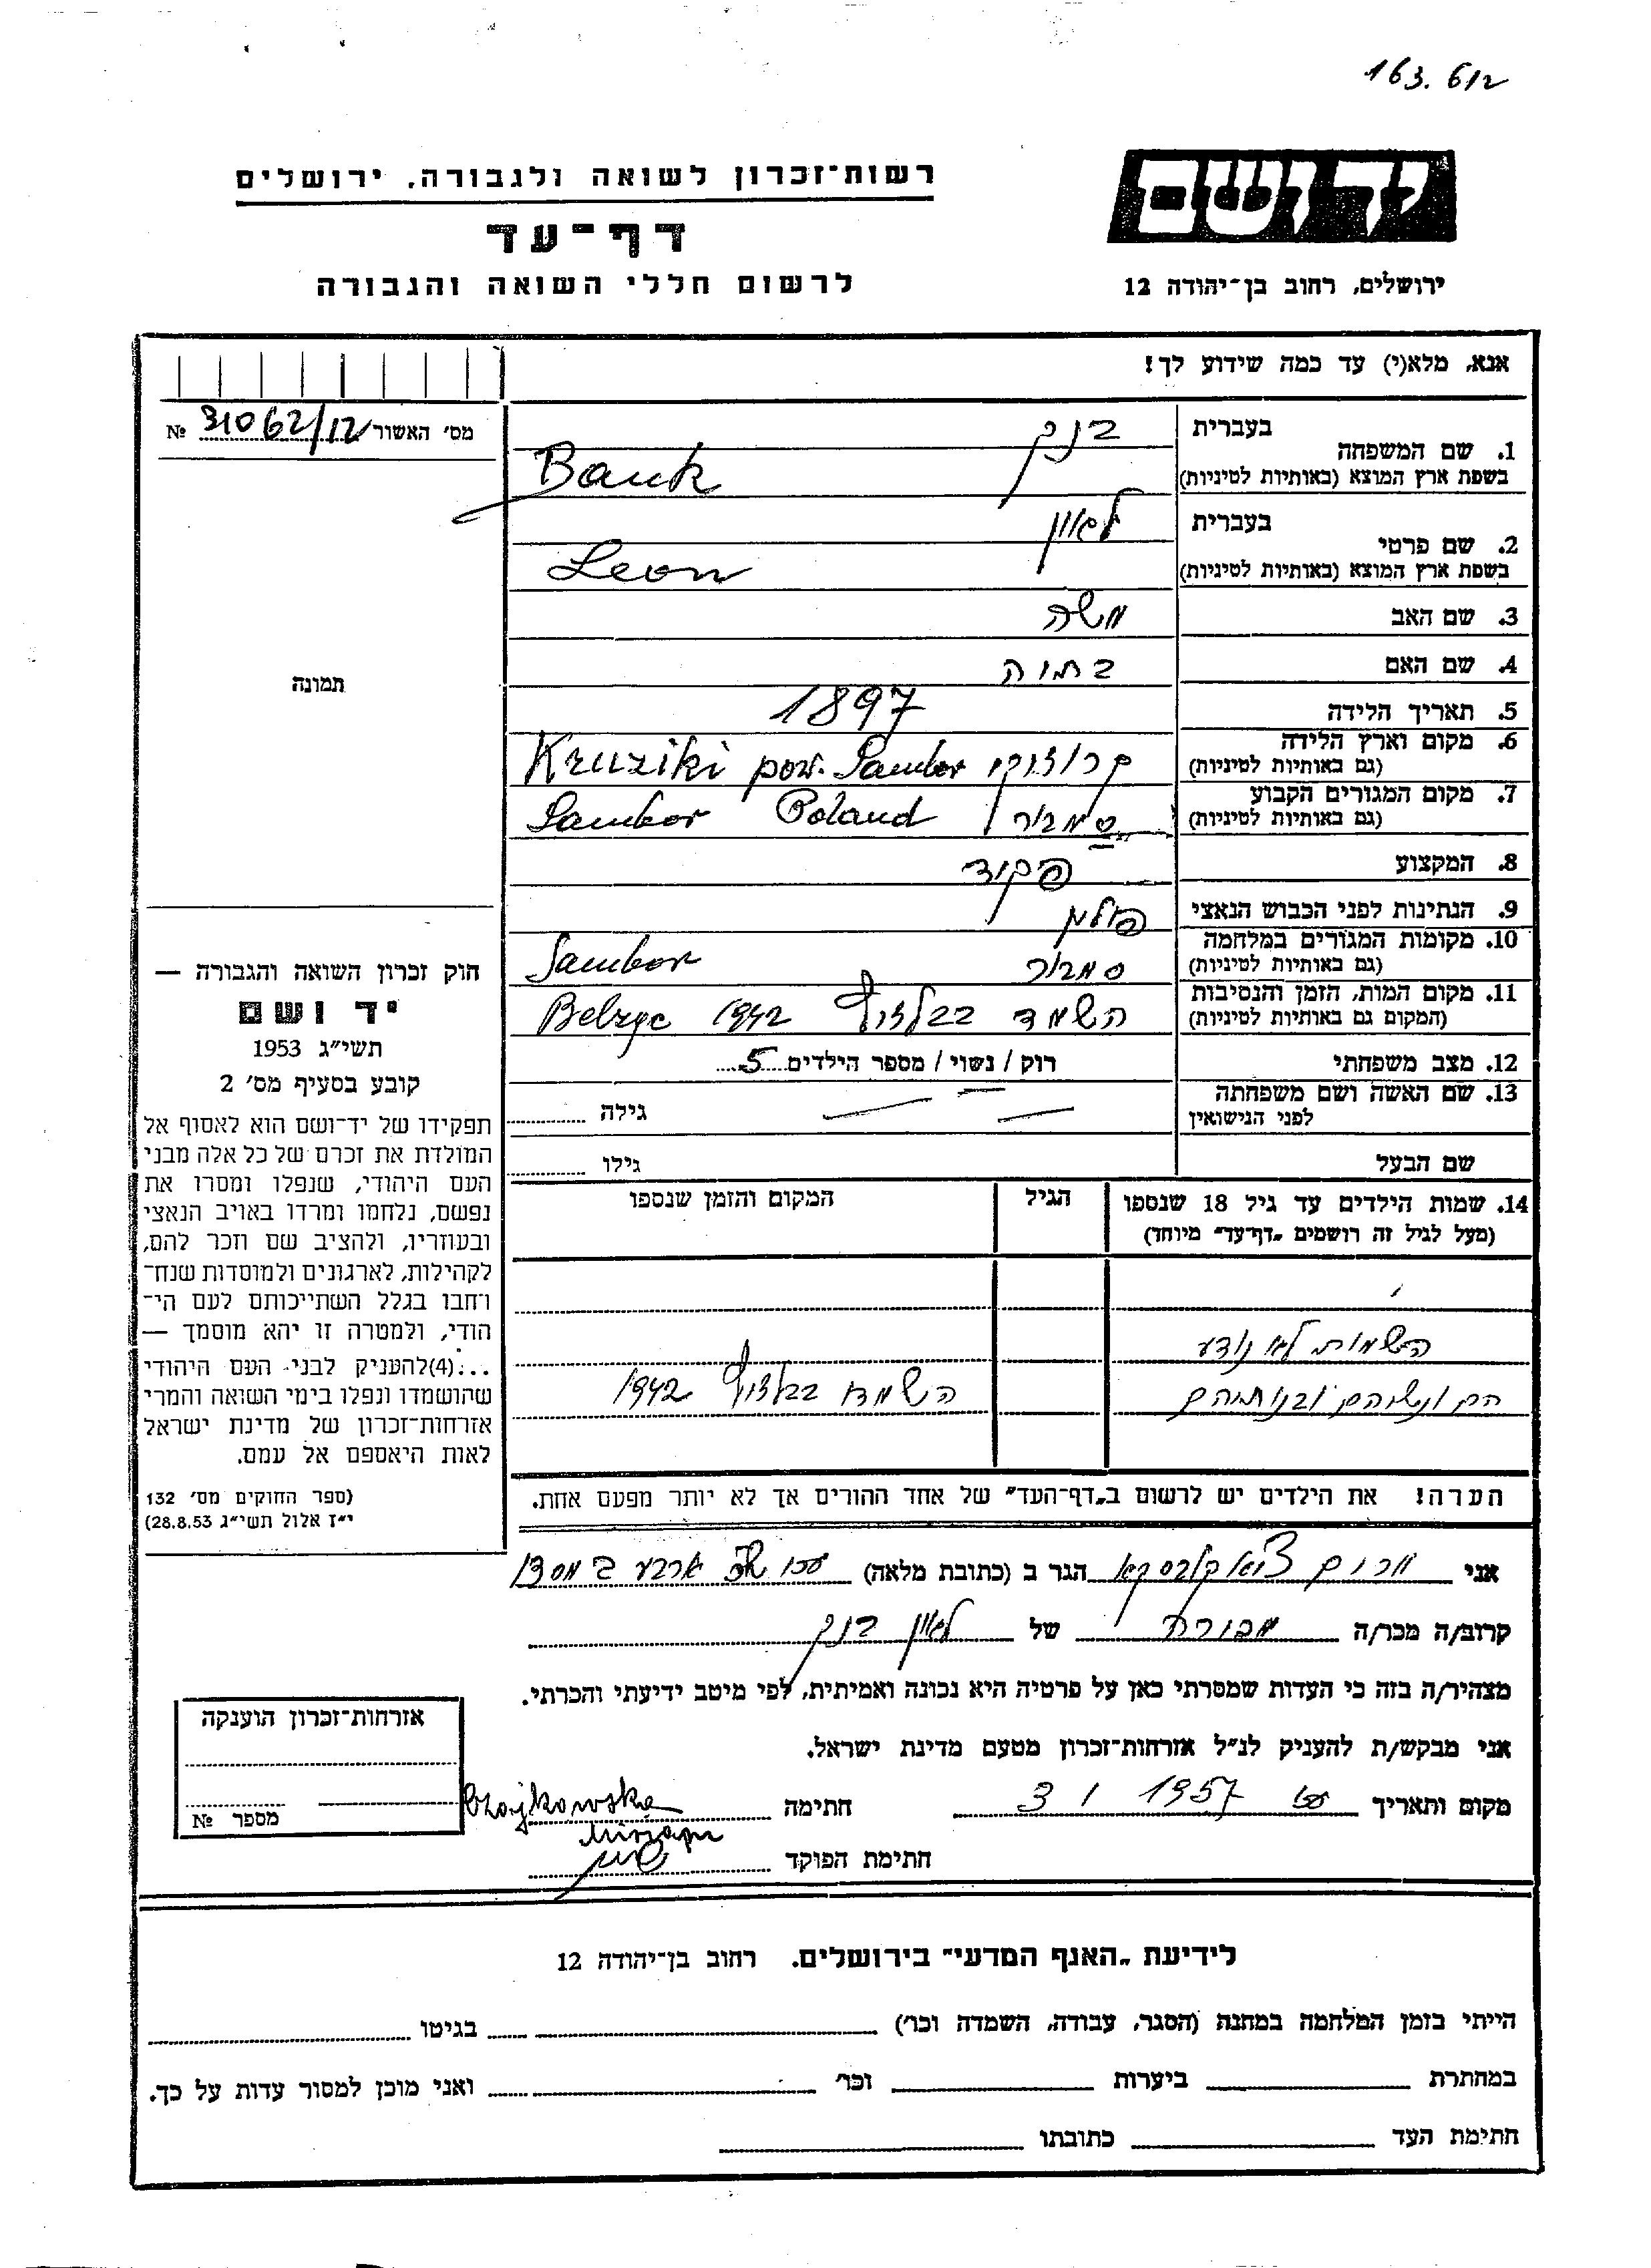 163.612
רשות-זכרון לשואה ולגבורה, ירושלים
יד ושם
דף-עד
לרשום חללי השואה והגבורה
ירושלים, רחוב בן-יהודה 12
אנא, מלא(י) עד כמה שידוע לך!
מס' האשור 31062/12 №
תמונה
1. שם המשפחה בעברית בנק
בשפת ארץ המוצא (באותיות לטיניות) Bank
2. שם פרטי בעברית לאון
בשפת ארץ המוצא (באותיות לטיניות) Leon
3. שם האב משה
4. שם האם
5. תאריך הלידה 1897
6. מקום וארץ הלידה (גם באותיות לטיניות) קרוז'יקי Kruziki pow. Sambor
7. מקום המגורים הקבוע (גם באותיות לטיניות) סמבור Sambor Poland
8. המקצוע פקיד
9. הנתינות לפני הכבוש הנאצי פולין
10. מקומות המגורים במלחמה (גם באותיות לטיניות) סמבור Sambor
11. מקום המות, הזמן והנסיבות (המקום גם באותיות לטיניות) השמד בבלזיץ 1942 Belzyc
12. מצב משפחתי רוק / נשוי / מספר הילדים 5
13. שם האשה ושם משפחתה לפני הנישואין גילה
שם הבעל גילו
14. שמות הילדים עד גיל 18 שנספו (מעל לגיל זה רושמים "דף-עד" מיוחד)
הגיל
המקום והזמן שנספו
השמות לא נודע
הם ונשיהם ובנותיהם השמדו בבלזיץ 1942
הערה! את הילדים יש לרשום ב"דף-העד" של אחד ההורים אך לא יותר מפעם אחת.
חוק זכרון השואה והגבורה —
יד ושם
תשי"ג 1953
קובע בסעיף מס' 2
תפקידו של יד-ושם הוא לאסוף אל
המולדת את זכרם של כל אלה מבני
העם היהודי, שנפלו ומסרו את
נפשם, נלחמו ומרדו באויב הנאצי
ובעוזריו, ולהציב שם וזכר להם,
לקהילות, לארגונים ולמוסדות שנח־
רחבו בגלל השתייכותם לעם הי־
הודי, ולמטרה זו יהא מוסמך —
...(4) להעניק לבני העם היהודי
שהושמדו ונפלו בימי השואה והמרי
אזרחות-זכרון של מדינת ישראל
לאות היאספם אל עמם.
(ספר החוקים מס' 132
י"ז אלול תשי"ג 28.8.53)
אני מרים הגר ב (כתובת מלאה) עכו
קרוב/ה מכר/ה מכורה של לאון בנק
מצהיר/ה בזה כי העדות שמסרתי כאן על פרטיה היא נכונה ואמיתית, לפי מיטב ידיעתי והכרתי.
אני מבקש/ת להעניק לנ"ל אזרחות-זכרון מטעם מדינת ישראל.
מקום ותאריך עכו 3 1 1957 חתימה Czajkowska
Miriam
חתימת הפוקד
אזרחות-זכרון הוענקה
מספר №
לידיעת "האנף המדעי" בירושלים. רחוב בן-יהודה 12
הייתי בזמן המלחמה במחנה (הסגר, עבודה, השמדה וכו') בגיטו
במחתרת ביערות וכו' ואני מוכן למסור עדות על כך.
חתימת העד כתובתו